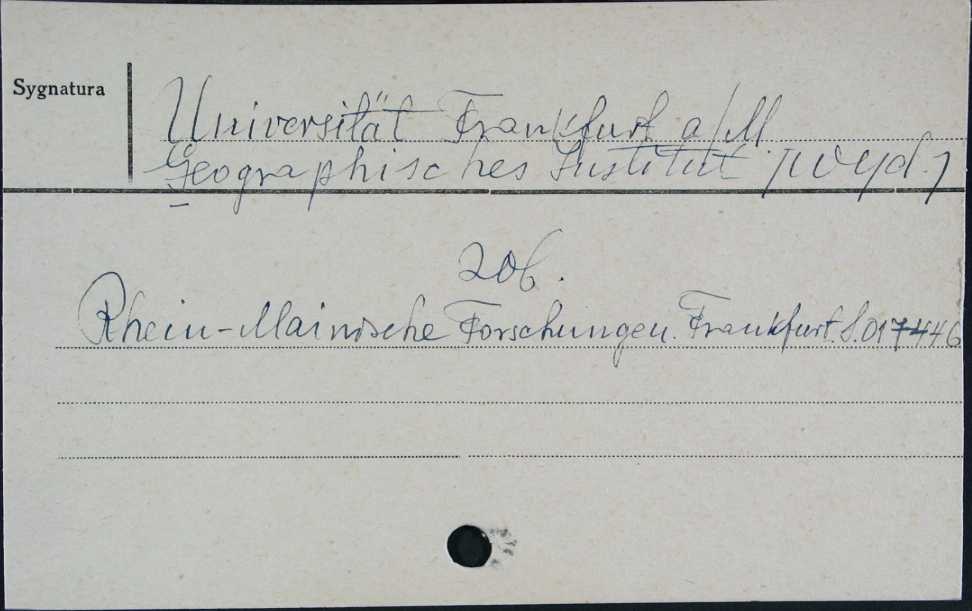 Sygnatura
Universität Frankfurt a/M
Geographisches Institut /wyd./
Zob.
Rhein-Mainische Forschungen. Frankfurt. S.017446